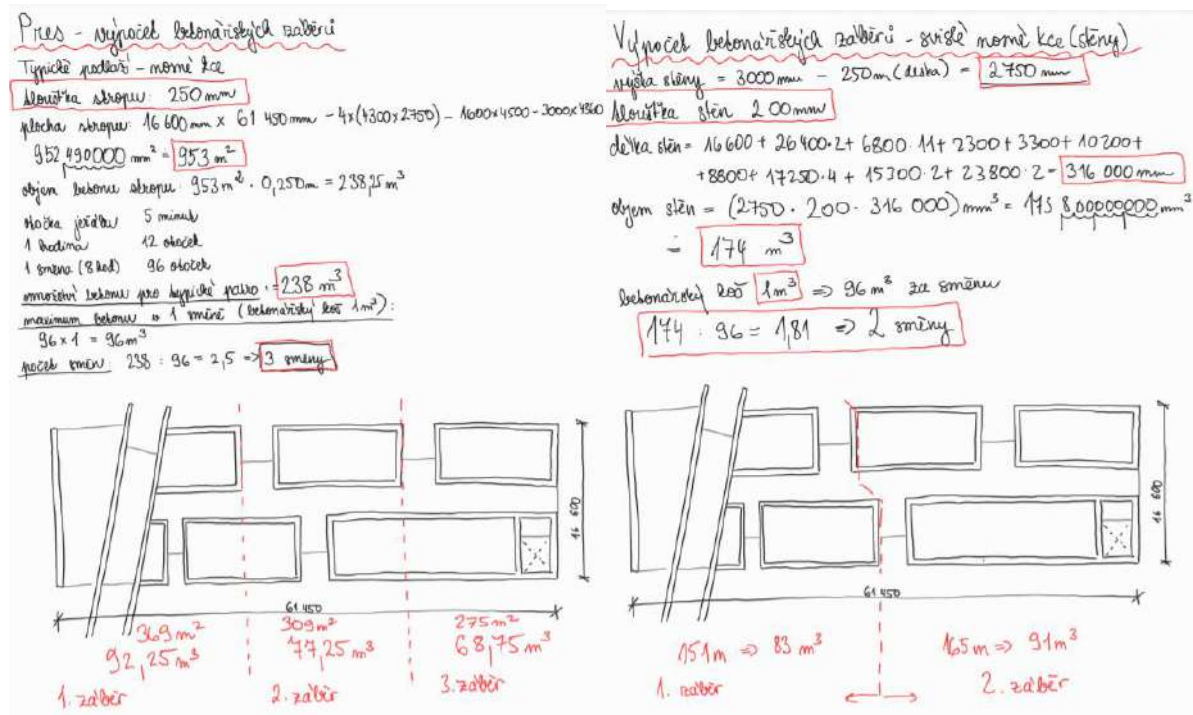 Pres - výpočet betonářských záběrů
Typické podlaží - nosné kce
tloušťka stropu: 250 mm
plocha stropu: 16 600 mm x 61 450 mm - 4x(4300x2750) - 1600x4500 - 3000x4360
952 490000 mm² = 953 m²
objem betonu stropu: 953 m² . 0,250m = 238,25 m³
otočka jeřábu 5 minut
1 hodina 12 otoček
1 směna (8 hod) 96 otoček
množství betonu pro typické patro = 238 m³
maximum betonu v 1 směně (betonářský koš 1m³):
96 x 1 = 96 m³
počet směn: 238 : 96 = 2,5 => 3 směny
16 600
61 450
369 m² 309 m² 275 m²
92,25 m³ 77,25 m³ 68,75 m³
1. záběr 2. záběr 3. záběr
Výpočet betonářských záběrů - svislé nosné kce (stěny)
výška stěny = 3000 mm - 250 m (deska) = 2750 mm
tloušťka stěn 200mm
délka stěn = 16 600 + 26 400.2 + 6800.11 + 2300 + 3300 + 10 200 +
+ 8800 + 17250.4 + 15 300.2 + 23 800.2 = 316 000 mm
objem stěn = (2750 . 200 . 316 000) mm³ = 173 800000000 mm³
= 174 m³
betonářský koš 1m³ => 96 m³ za směnu
174 : 96 = 1,81 => 2 směny
16 600
61 450
151m => 83 m³ 165 m => 91 m³
1. záběr 2. záběr